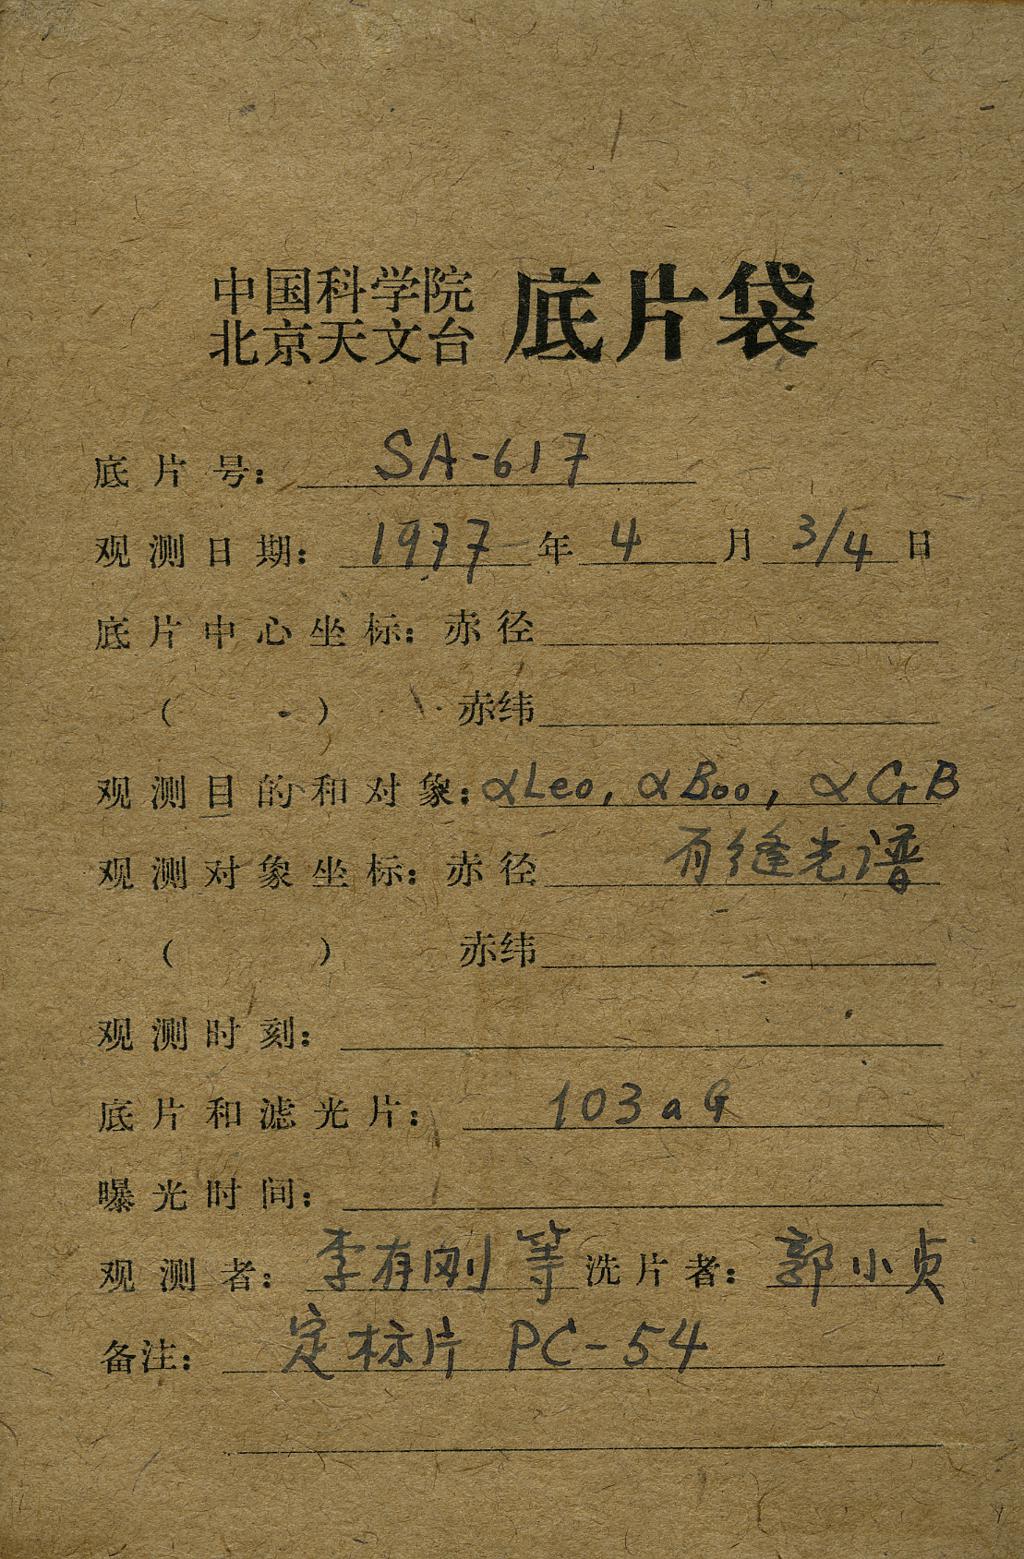 中国科学院
北京天文台 底片袋
底片号: SA-617
观测日期: 1977年4月3/4日
底片中心坐标: 赤径
( ) 赤纬
观测目的和对象: αLeo, αBoo, αCrB
观测对象坐标: 赤径 有缝光谱
( ) 赤纬
观测时刻:
底片和滤光片: 103aG
曝光时间:
观测者: 李有刚 等 洗片者: 郭小贞
备注: 定标片 PC-54